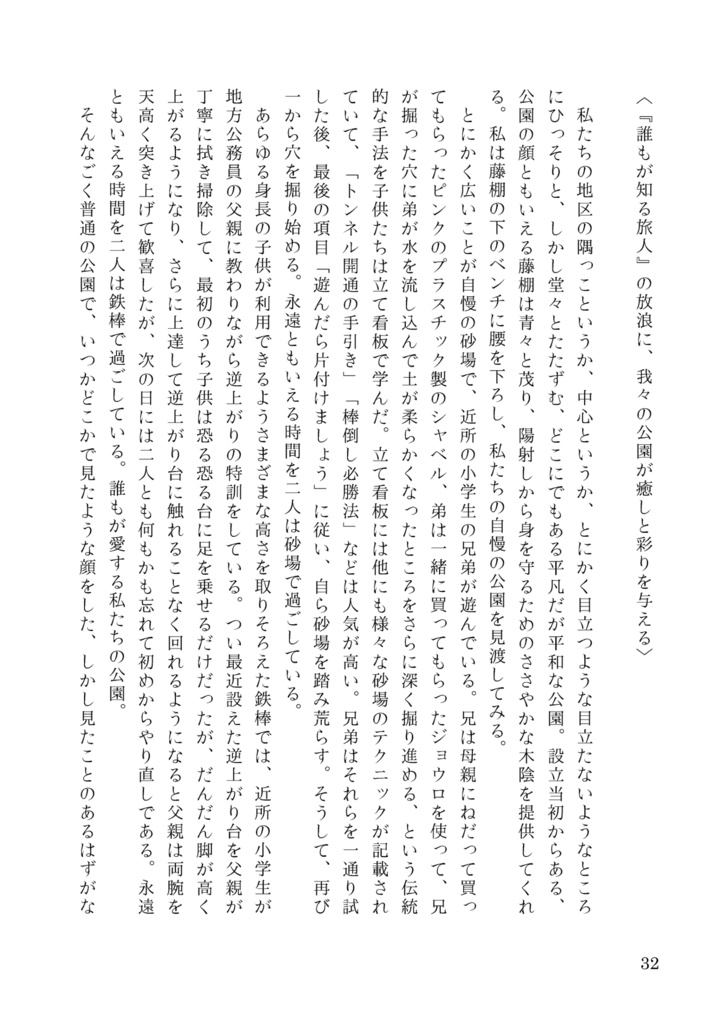 〈『誰もが知る旅人』の放浪に、我々の公園が癒しと彩りを与える〉
私たちの地区の隅っこというか、中心というか、とにかく目立つような目立たないようなところ
にひっそりと、しかし堂々とたたずむ、どこにでもある平凡だが平和な公園。設立当初からある、
公園の顔ともいえる藤棚は青々と茂り、陽射しから身を守るためのささやかな木陰を提供してくれ
る。私は藤棚の下のベンチに腰を下ろし、私たちの自慢の公園を見渡してみる。
とにかく広いことが自慢の砂場で、近所の小学生の兄弟が遊んでいる。兄は母親にねだって買っ
てもらったピンクのプラスチック製のシャベル、弟は一緒に買ってもらったジョウロを使って、兄
が掘った穴に弟が水を流し込んで土が柔らかくなったところをさらに深く掘り進める、という伝統
的な手法を子供たちは立て看板で学んだ。立て看板には他にも様々な砂場のテクニックが記載され
ていて、「トンネル開通の手引き」「棒倒し必勝法」などは人気が高い。兄弟はそれらを一通り試
した後、最後の項目「遊んだら片付けましょう」に従い、自ら砂場を踏み荒らす。そうして、再び
一から穴を掘り始める。永遠ともいえる時間を二人は砂場で過ごしている。
あらゆる身長の子供が利用できるようさまざまな高さを取りそろえた鉄棒では、近所の小学生が
地方公務員の父親に教わりながら逆上がりの特訓をしている。つい最近設えた逆上がり台を父親が
丁寧に拭き掃除して、最初のうち子供は恐る恐る台に足を乗せるだけだったが、だんだん脚が高く
上がるようになり、さらに上達して逆上がり台に触れることなく回れるようになると父親は両腕を
天高く突き上げて歓喜したが、次の日には二人とも何もかも忘れて初めからやり直しである。永遠
ともいえる時間を二人は鉄棒で過ごしている。誰もが愛する私たちの公園。
そんなごく普通の公園で、いつかどこかで見たような顔をした、しかし見たことのあるはずがな
32